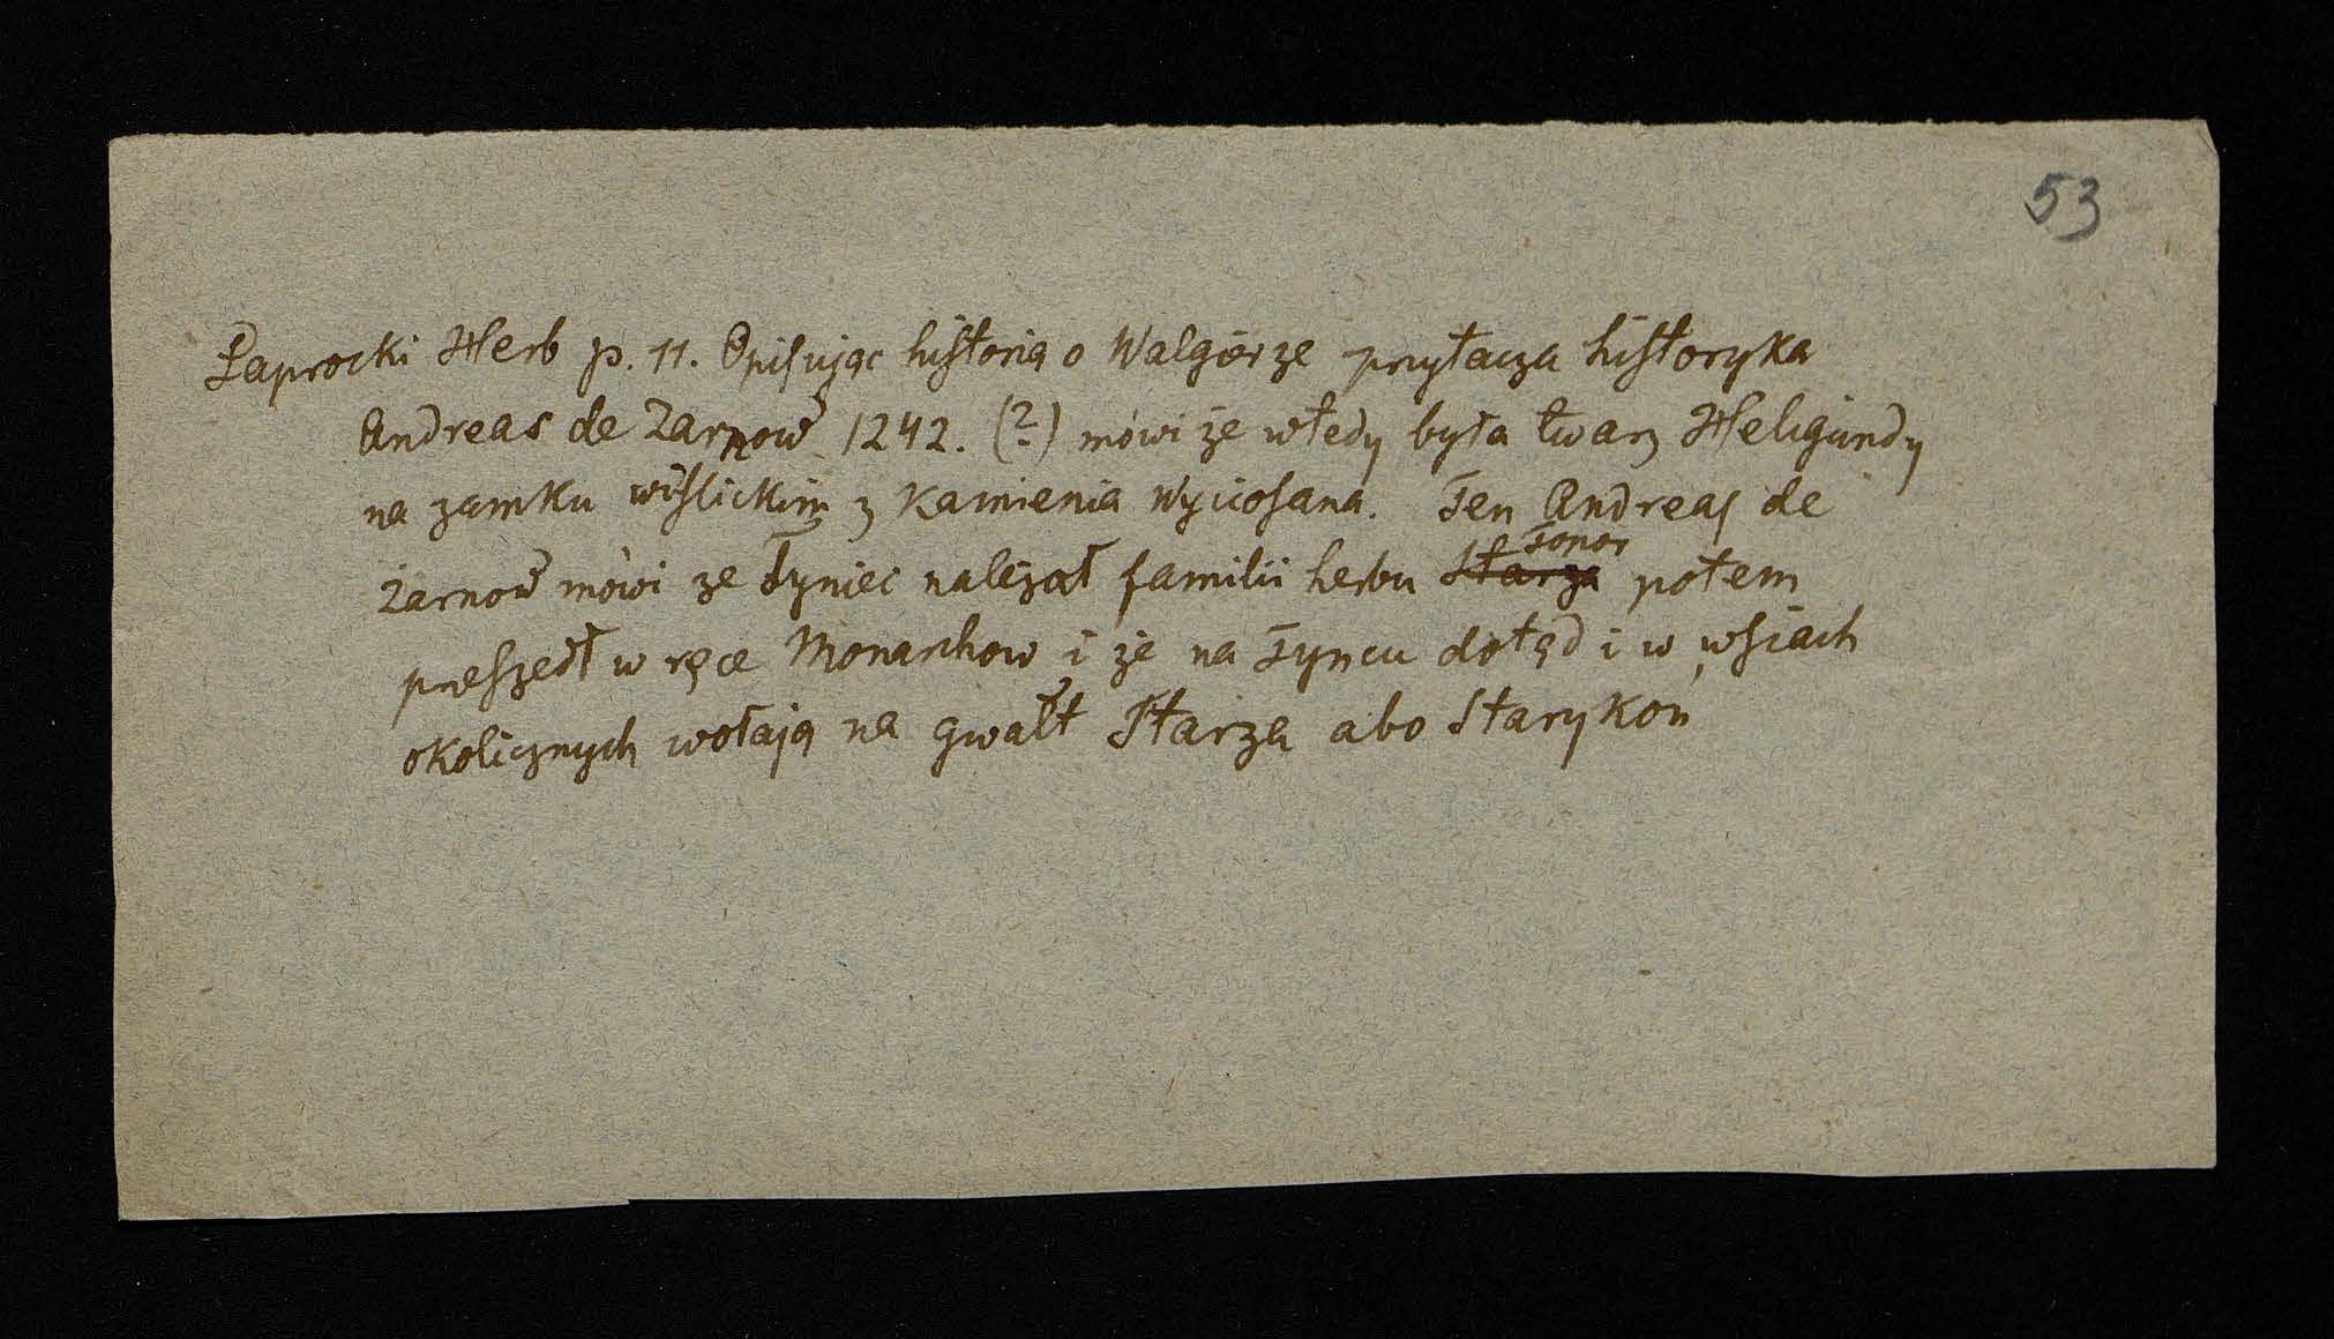 53
Paprocki Herb p. 11. Opisując historią o Walgierze przytacza historyka
Andreas de Żarnow 1242. (?) mówi że wtedy była twarz Heligundy
na zamku wiślickim z kamienia wyciosana. Ten Andreas de
Żarnow mówi że Tyniec należał familii herbu ~~Starza~~ Topor potem
przeszedł w ręce Monarchow i że na Tyncu dotąd i w wsiach
okolicznych wołają na gwałt Starza abo Starykoń